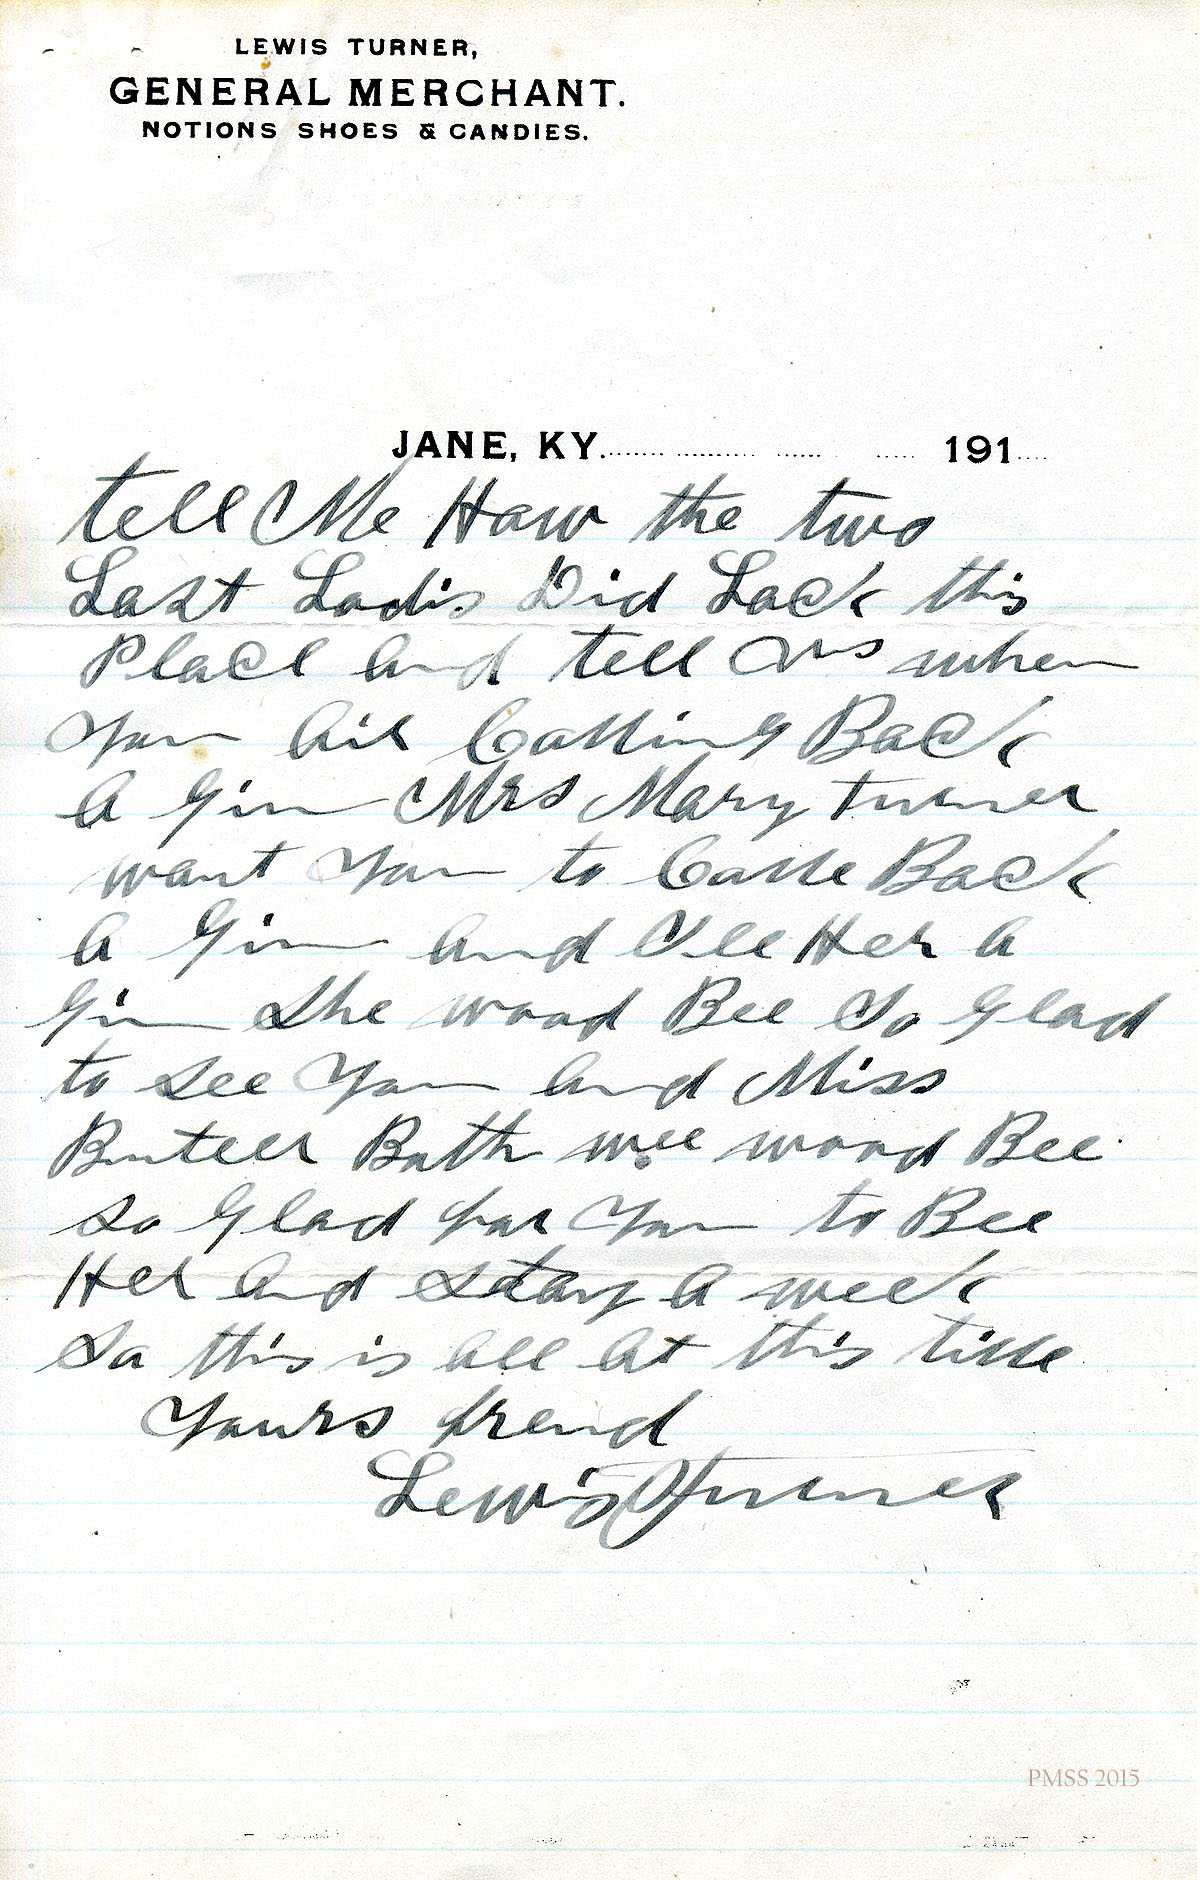 LEWIS TURNER,
GENERAL MERCHANT.
NOTIONS SHOES & CANDIES.
JANE, KY. 191
tell Me Haw the two
Last Ladis Did Lack this
Place and tell us when
You air Comming Back
A Gin Mrs Mary turner
want You to Come Back
A Gin and See Her A
Gin She wood Bee So Glad
to see You and Miss
Buteer Both wee wood Bee
so Glad for You to Bee
Her and stay A week
So this is all At this time
Yours frend
Lewis Turner
PMSS 2015